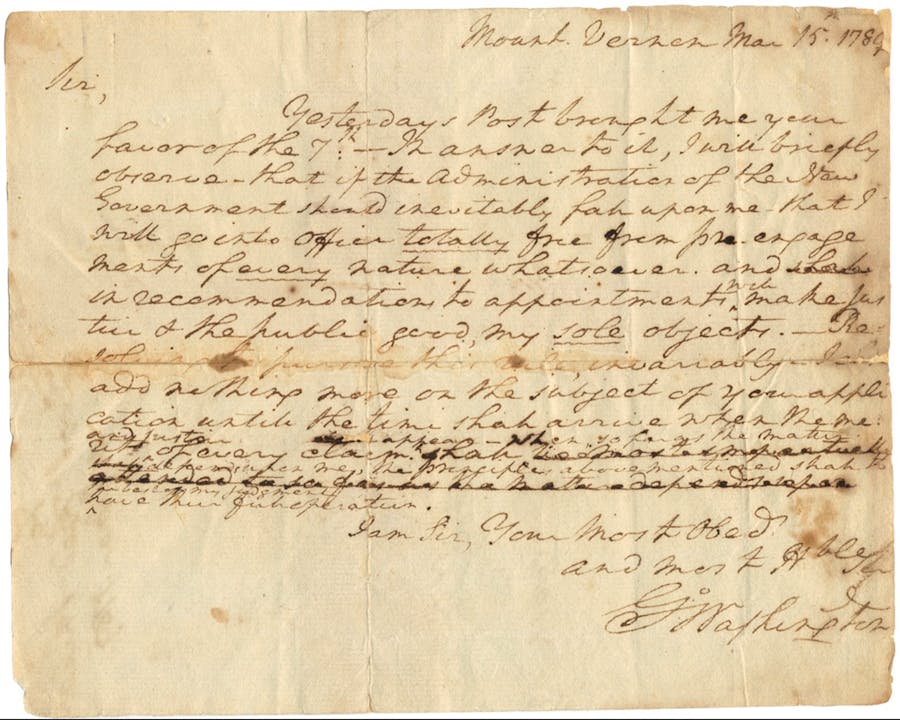 Mount Vernon Mar 15th 1789
Sir,
Yesterdays Post brought me your
favor of the 7th. — In answer to it, I will briefly
observe — that if the Administration of the New
Government should inevitably fall upon me that I
will go into office totally free from pre-engage
ments of every nature whatsoever. and
in recommendations to appointments will make jus
tice & the public good, my sole objects. — Re-
pursue this rule, invariably I
add nothing more on the subject of your appli
cation until the time shall arrive when the me:
rits and justice of every claim shall appear — when, so far as the matter
depends upon me, the principles above mentioned shall to
the best of my judgment
have their full operation.
I am Sir, Your Most Obedt
and most Hble Sr
Go Washington